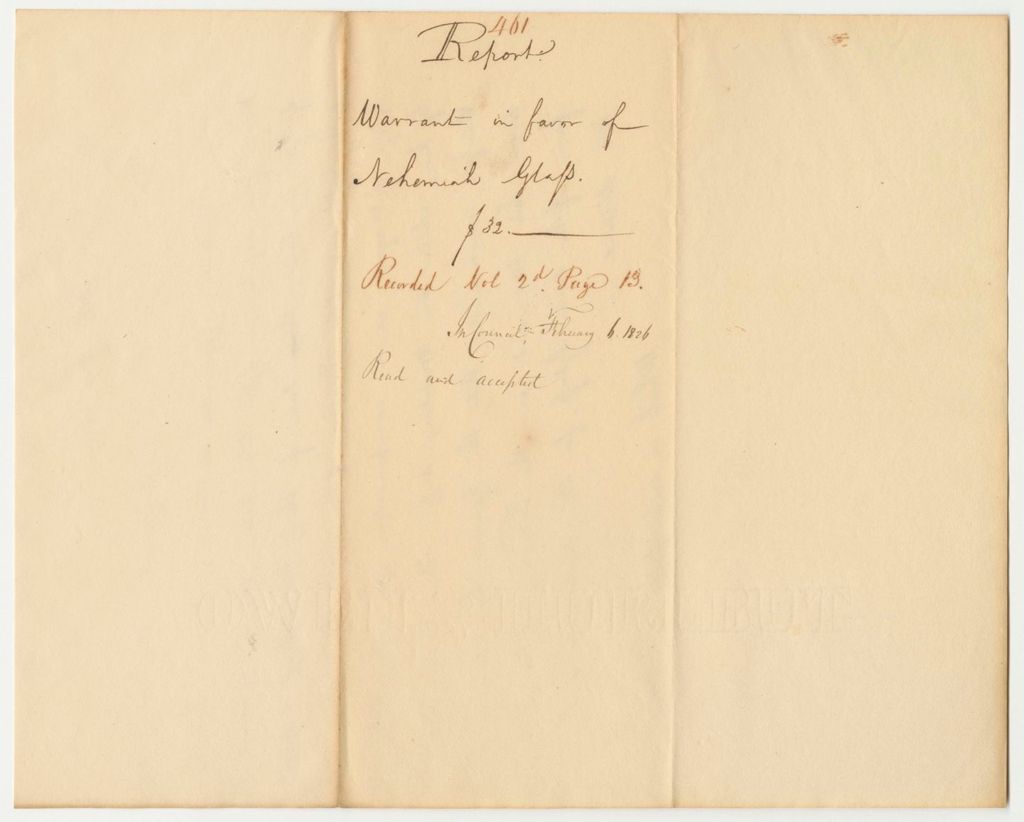 461
Report
Warrant in favor of
Nehemiah Glaſs.
$32.
Recorded Vol 2d. Page 13.
In Council, February 6. 1826
Read and accepted